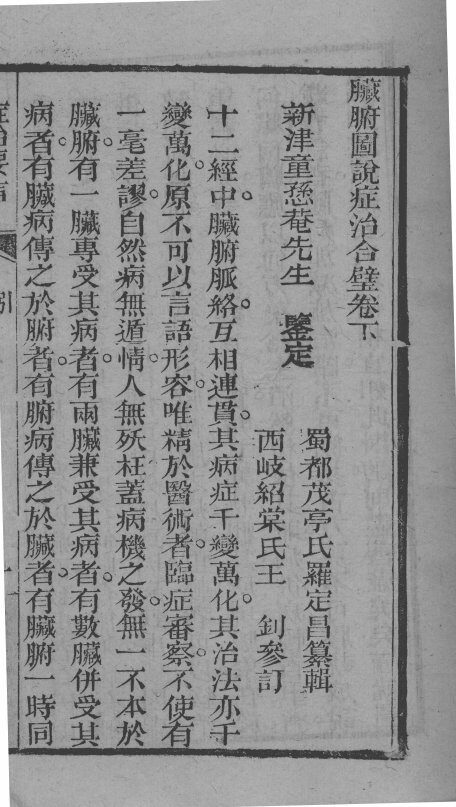 臟腑圖說症治合璧卷下
蜀都茂亭氏羅定昌纂輯
新津童愻菴先生 鑒定
西岐紹棠氏王 釗參訂
十二經中臟腑脈絡互相連貫其病症千變萬化其治法亦千
變萬化原不可以言語形容唯精於醫術者臨症審察不使有
一毫差謬自然病無遁情人無殀枉蓋病機之發無一不本於
臟腑有一臟專受其病者有兩臟兼受其病者有數臟併受其
病者有臟病傳之於腑者有腑病傳之於臟者有臟腑一時同
引